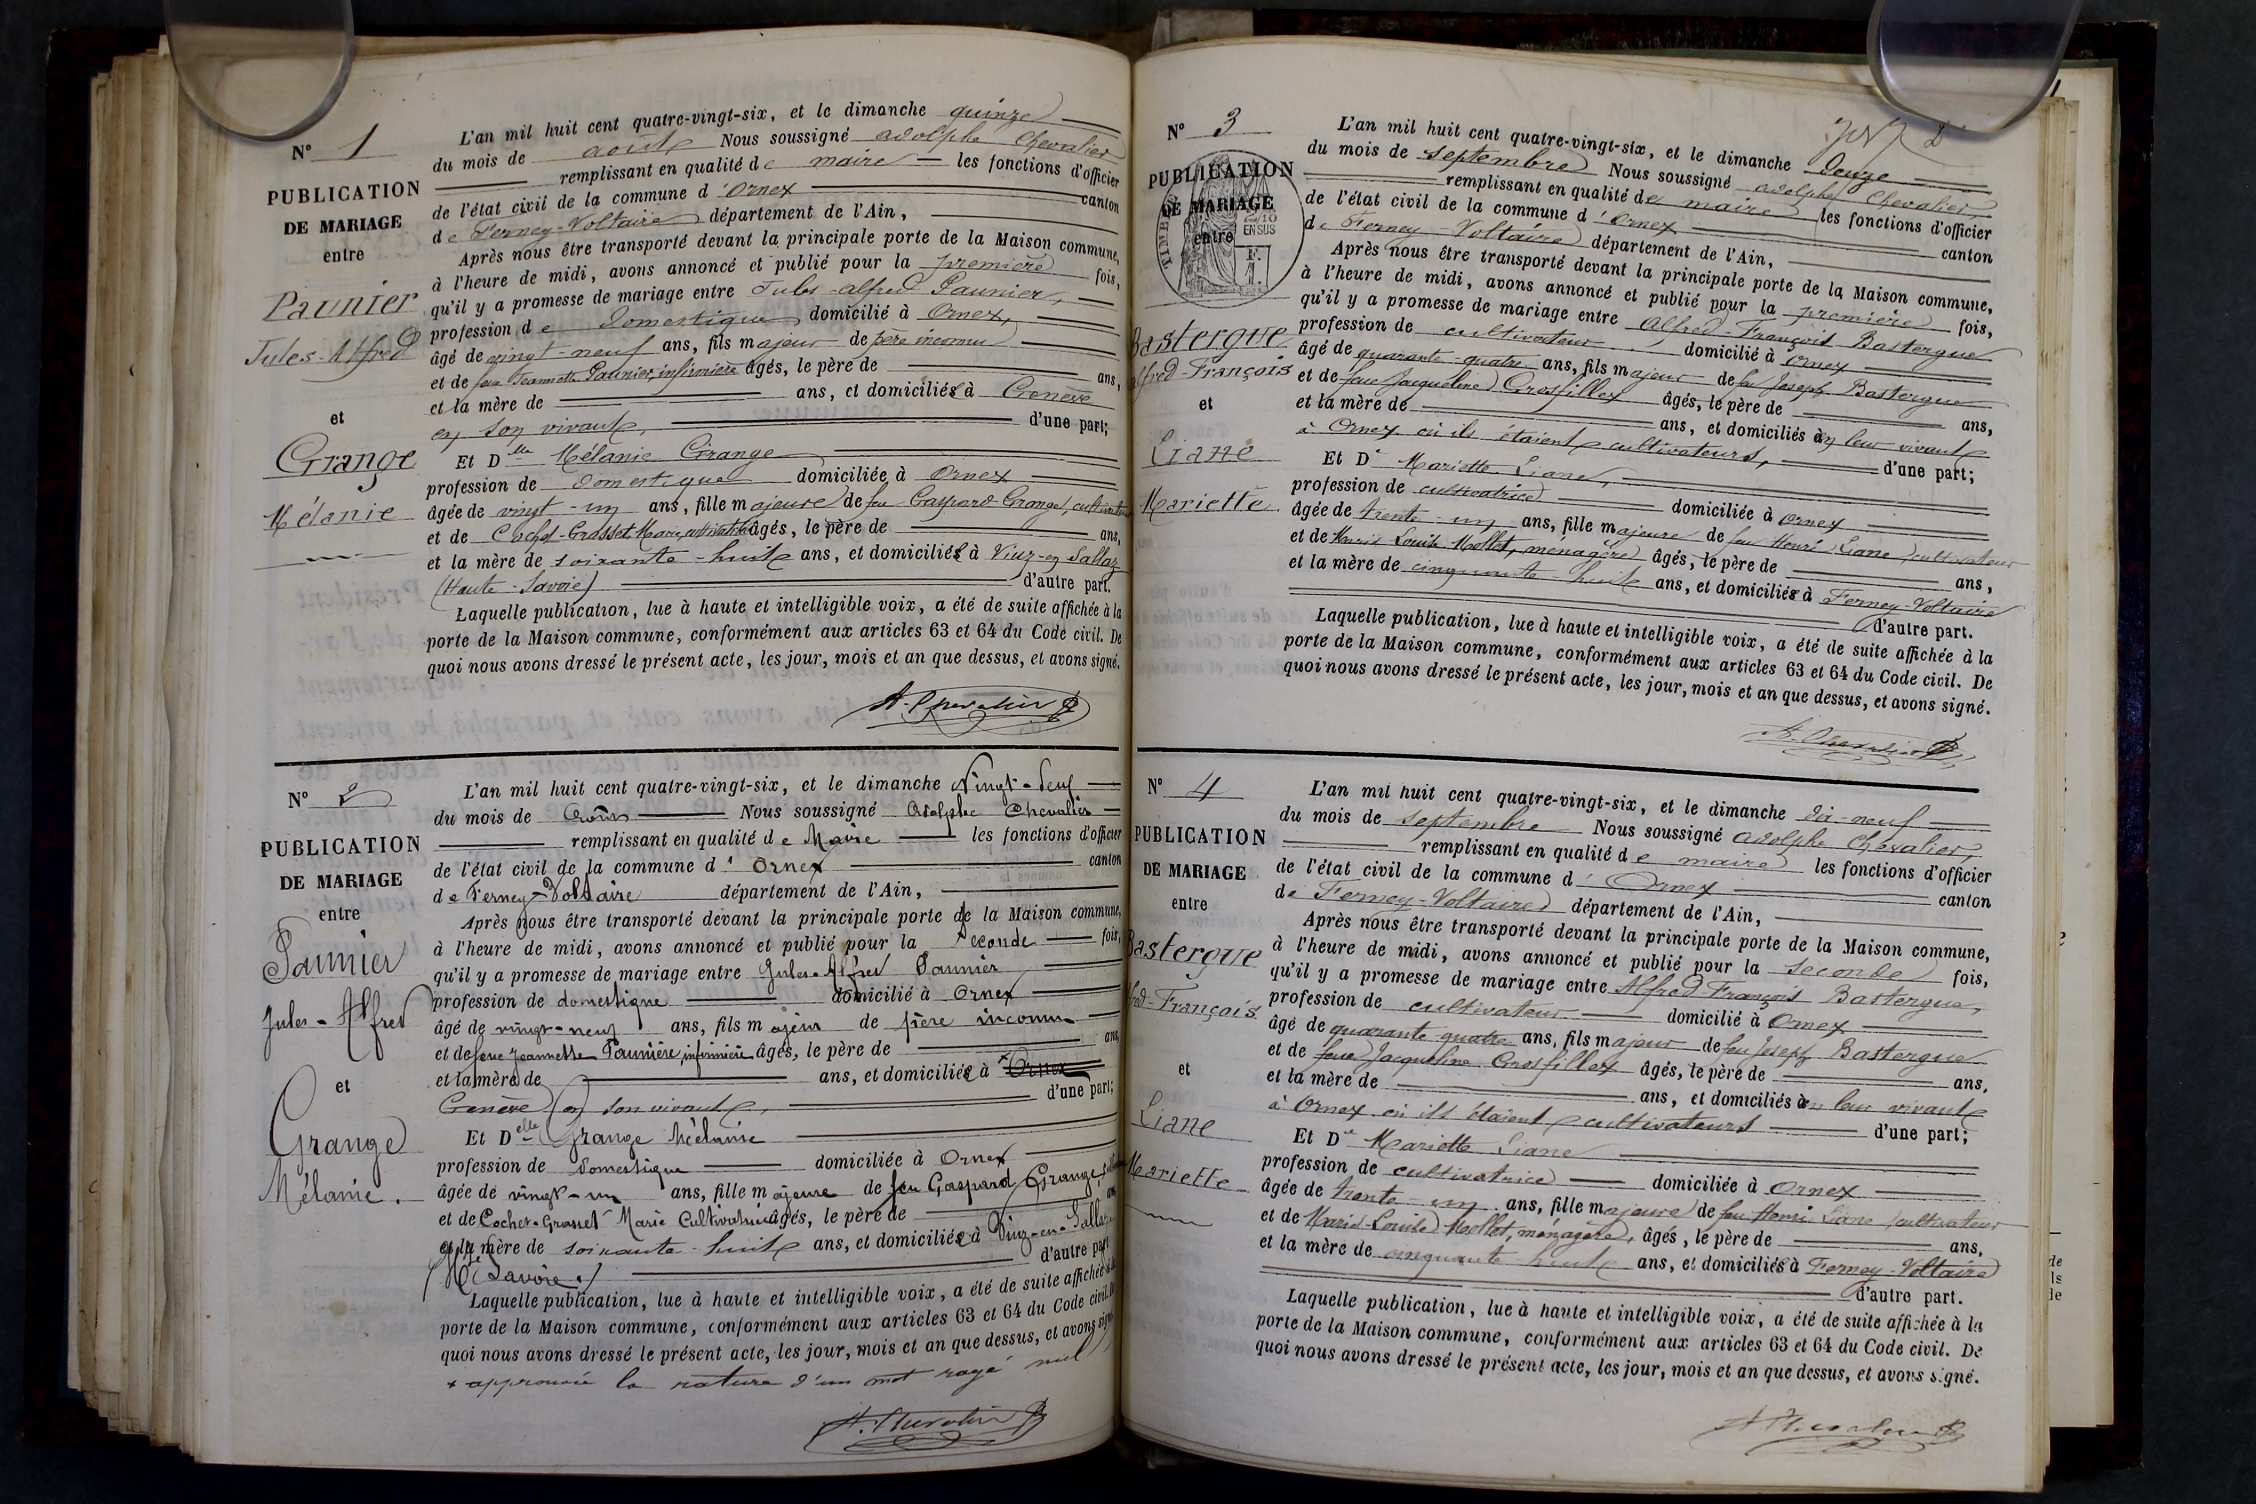 N° 1
PUBLICATION
DE MARIAGE
entre
Paunier
Jules-Alfred
et
Grange
Mélanie
L'an mil huit cent quatre-vingt-six, et le dimanche quinze
du mois de août Nous soussigné Adolphe Chevalier
remplissant en qualité de maire les fonctions d'officier
de l'état civil de la commune d'Ornex canton
de Ferney-Voltaire département de l'Ain,
Après nous être transporté devant la principale porte de la Maison commune,
à l'heure de midi, avons annoncé et publié pour la première fois,
qu'il y a promesse de mariage entre Jules-Alfred Paunier,
profession de domestique domicilié à Ornex,
âgé de vingt-neuf ans, fils majeur de père inconnu
et de feue Jeannette Paunier, infirmière âgés, le père de ans,
et la mère de ans, et domiciliés à Genève
en son vivant, d'une part;
Et Dlle Mélanie Grange
profession de domestique domiciliée à Ornex
âgée de vingt-un ans, fille majeure de feu Gaspard Grange, cultivateur
et de Cochet-Grasset Marie, cultivatrice âgés, le père de ans,
et la mère de soixante-huit ans, et domiciliés à Viuz-en-Sallaz
(Haute-Savoie) d'autre part.
Laquelle publication, lue à haute et intelligible voix, a été de suite affichée à la
porte de la Maison commune, conformément aux articles 63 et 64 du Code civil. De
quoi nous avons dressé le présent acte, les jour, mois et an que dessus, et avons signé.
A. Chevalier
N° 2
PUBLICATION
DE MARIAGE
entre
Paunier
Jules-Alfred
et
Grange
Mélanie.
L'an mil huit cent quatre-vingt-six, et le dimanche Vingt-deux
du mois de Août Nous soussigné Adolphe Chevalier
remplissant en qualité de Maire les fonctions d'officier
de l'état civil de la commune d'Ornex canton
de Ferney-Voltaire département de l'Ain,
Après nous être transporté devant la principale porte de la Maison commune,
à l'heure de midi, avons annoncé et publié pour la seconde fois,
qu'il y a promesse de mariage entre Jules-Alfred Paunier
profession de domestique domicilié à Ornex
âgé de vingt-neuf ans, fils majeur de père inconnu
et de feue Jeannette Paunière, infirmière âgés, le père de ans,
et la mère de ans, et domiciliés à × Ornex
Genève en son vivant, d'une part;
Et Delle Grange Mélanie
profession de domestique domiciliée à Ornex
âgée de vingt-un ans, fille majeure de feu Gaspard Grange,
et de Cochet-Grasset Marie Cultivatrice âgés, le père de ans
et la mère de soixante-huit ans, et domiciliés à Viuz-en-Sallaz
(Hte Savoie.) d'autre part
Laquelle publication, lue à haute et intelligible voix, a été de suite affichée à la
porte de la Maison commune, conformément aux articles 63 et 64 du Code civil. De
quoi nous avons dressé le présent acte, les jour, mois et an que dessus, et avons signé
× approuvé la rature d'un mot rayé nul
A. Chevalier
N° 3
PUBLICATION
DE MARIAGE
entre
TIMBRE
2/10
EN SUS
Bastergue
Alfred-François
et
Liane
Mariette
L'an mil huit cent quatre-vingt-six, et le dimanche douze
du mois de septembre Nous soussigné Adolphe Chevalier,
remplissant en qualité de maire les fonctions d'officier
de l'état civil de la commune d'Ornex canton
de Ferney-Voltaire département de l'Ain,
Après nous être transporté devant la principale porte de la Maison commune,
à l'heure de midi, avons annoncé et publié pour la première fois,
qu'il y a promesse de mariage entre Alfred-François Bastergue
profession de cultivateur domicilié à Ornex
âgé de quarante-quatre ans, fils majeur de feu Joseph Bastergue
et de feue Jacqueline Grosfillex âgés, le père de ans,
et la mère de ans, et domiciliés en leur vivant
à Ornex où ils étaient cultivateurs, d'une part;
Et De Mariette Liane,
profession de cultivatrice domiciliée à Ornex
âgée de trente-un ans, fille majeure de feu Henri Liane cultivateur
et de Marie Louise Mollet, ménagère âgés, le père de ans,
et la mère de cinquante-huit ans, et domiciliés à Ferney-Voltaire
d'autre part.
Laquelle publication, lue à haute et intelligible voix, a été de suite affichée à la
porte de la Maison commune, conformément aux articles 63 et 64 du Code civil. De
quoi nous avons dressé le présent acte, les jour, mois et an que dessus, et avons signé.
A. Chevalier
N° 4
PUBLICATION
DE MARIAGE
entre
Bastergue
Alfred-François
et
Liane
Mariette
L'an mil huit cent quatre-vingt-six, et le dimanche dix-neuf
du mois de septembre Nous soussigné Adolphe Chevalier,
remplissant en qualité de maire les fonctions d'officier
de l'état civil de la commune d'Ornex canton
de Ferney-Voltaire département de l'Ain,
Après nous être transporté devant la principale porte de la Maison commune,
à l'heure de midi, avons annoncé et publié pour la seconde fois,
qu'il y a promesse de mariage entre Alfred-François Bastergue,
profession de cultivateur domicilié à Ornex
âgé de quarante quatre ans, fils majeur de feu Joseph Bastergue
et de feue Jacqueline Grosfillex âgés, le père de ans,
et la mère de ans, et domiciliés en leur vivant
à Ornex où ils étaient cultivateurs d'une part;
Et De Mariette Liane
profession de cultivatrice domiciliée à Ornex
âgée de trente-un ans, fille majeure de feu Henri Liane cultivateur
et de Marie-Louise Mollet, ménagère, âgés, le père de ans,
et la mère de cinquante huit ans, et domiciliés à Ferney-Voltaire
d'autre part.
Laquelle publication, lue à haute et intelligible voix, a été de suite affichée à la
porte de la Maison commune, conformément aux articles 63 et 64 du Code civil. De
quoi nous avons dressé le présent acte, les jour, mois et an que dessus, et avons signé.
A. Chevalier